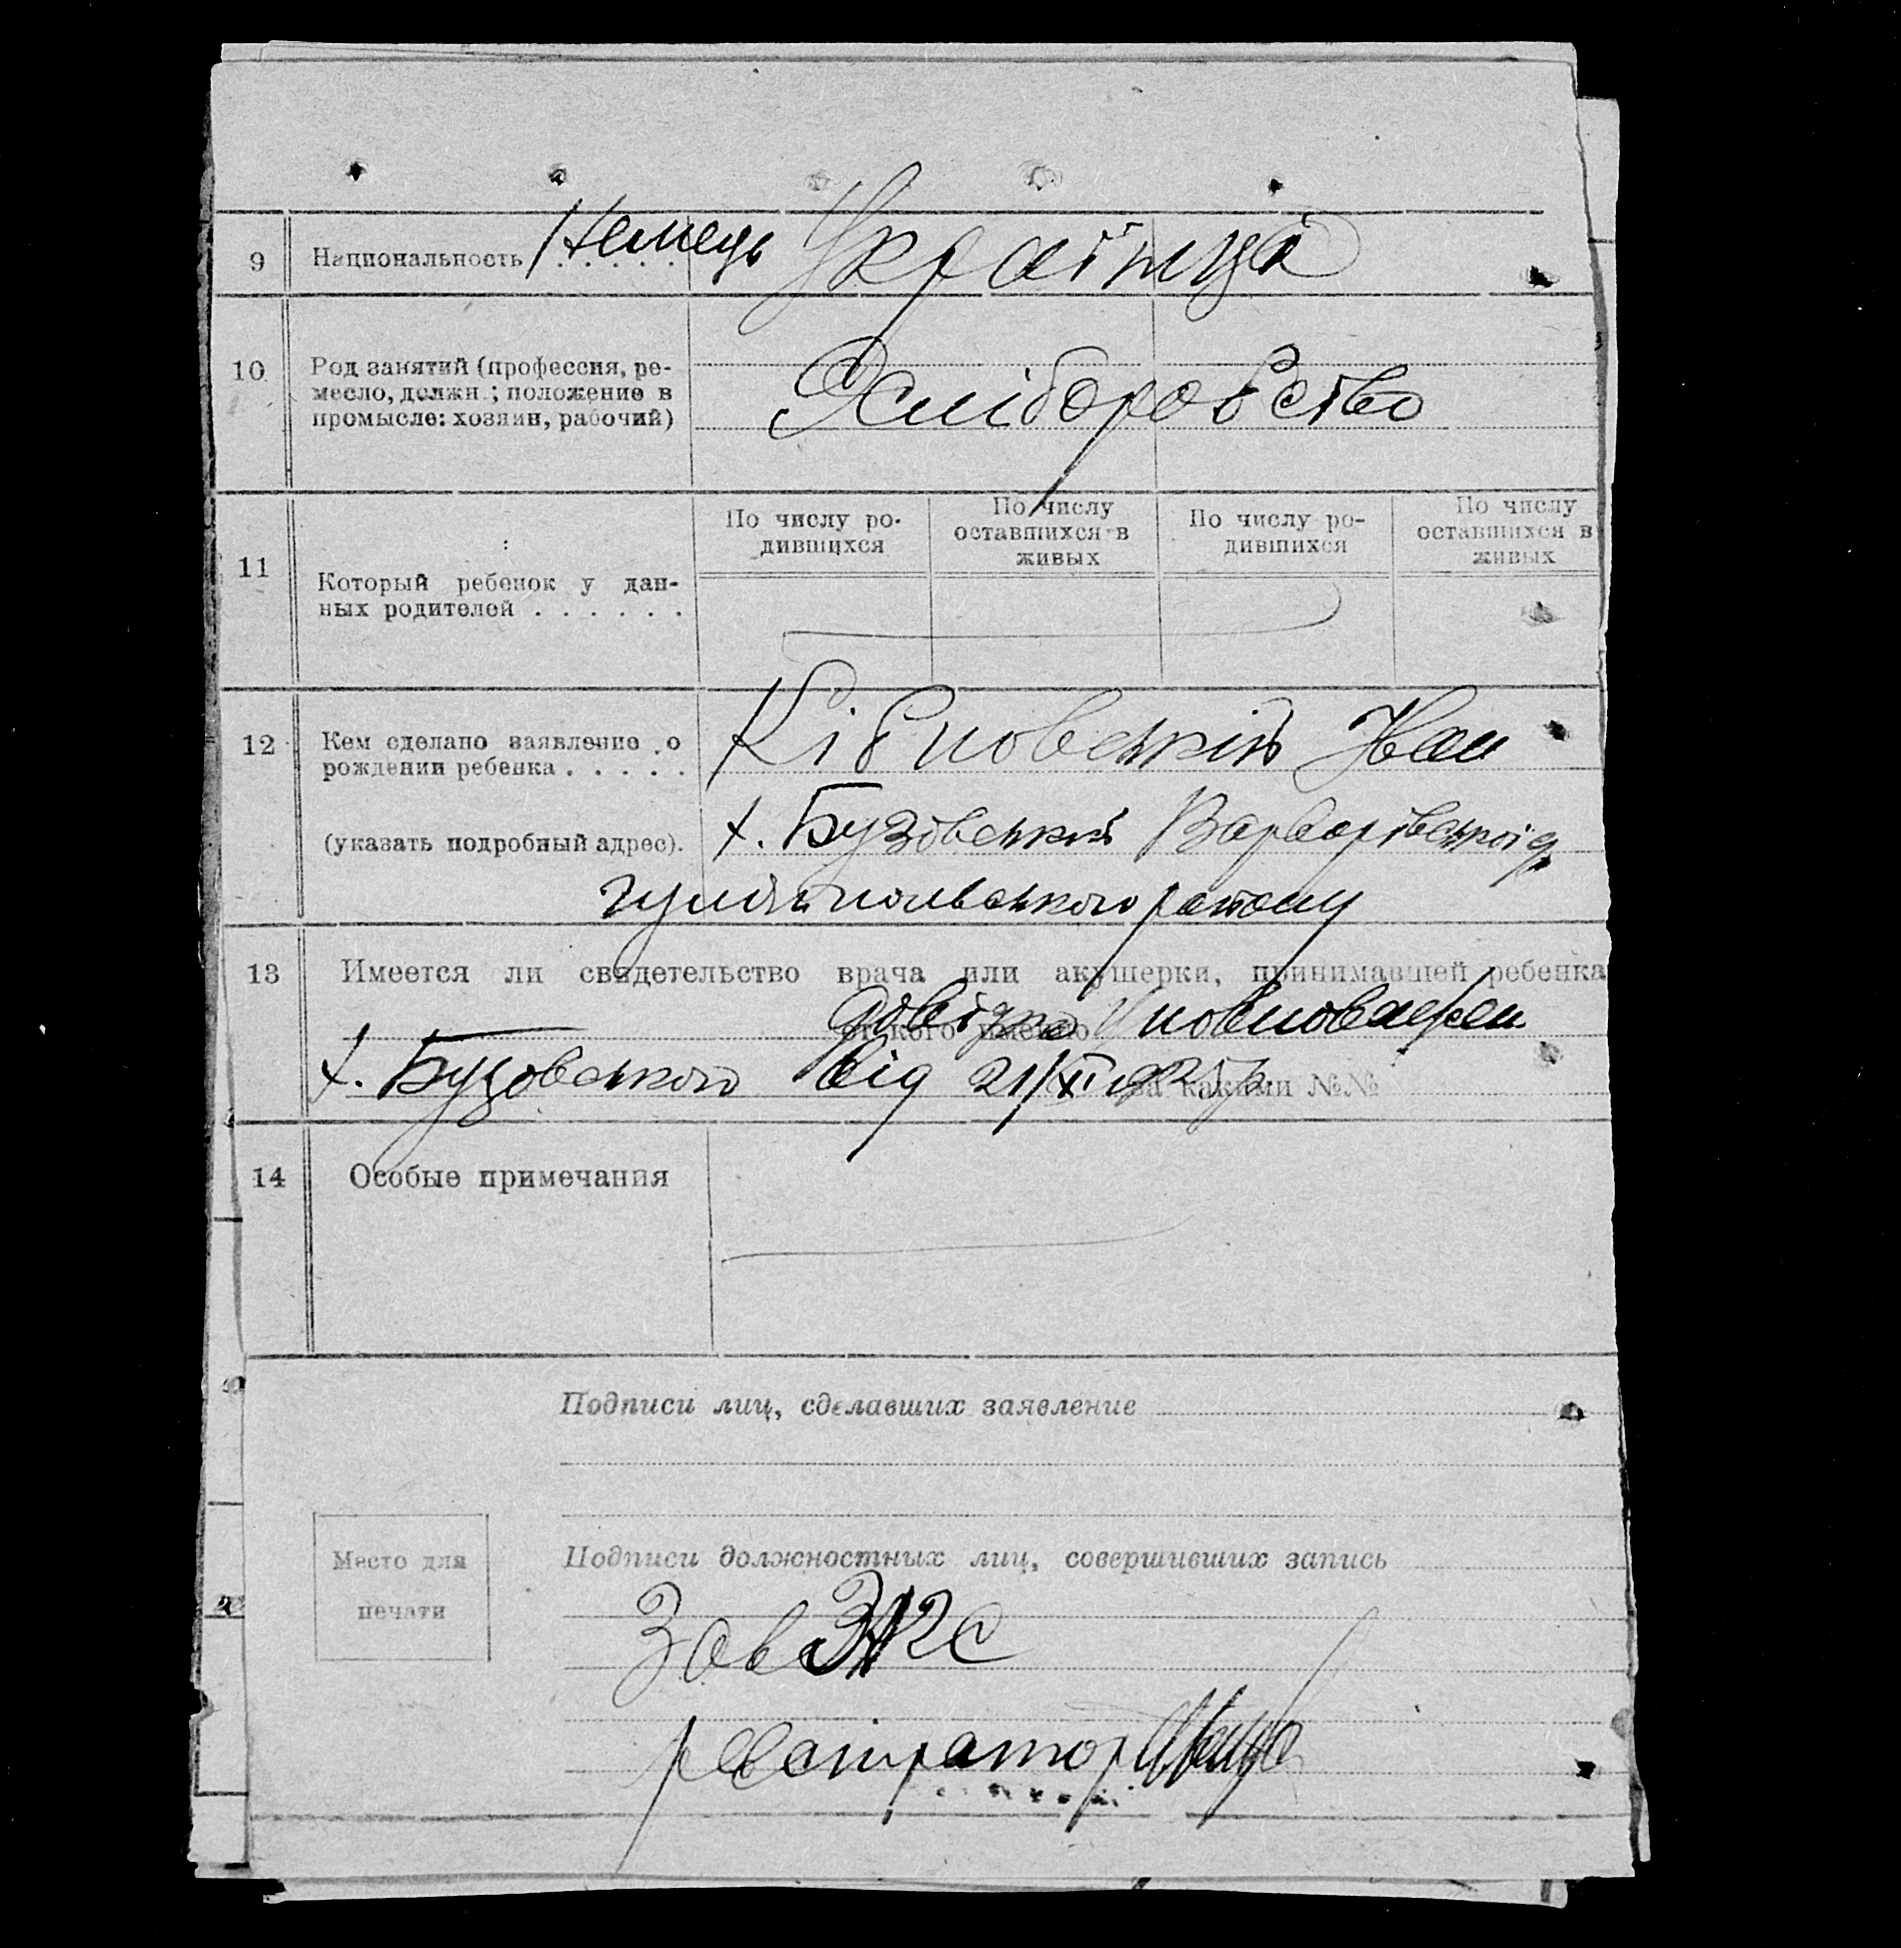 9 Национальность . . . . . Немець Українці
10 Род занятий (профессия, ре-
месло, должн.; положение в
промысле: хозяин, рабочий)
Хліборобство
11 Который ребенок у дан-
ных родителей . . . . . .
По числу ро-
дившихся
По числу
оставшихся в
живых
По числу ро-
дившихся
По числу
оставшихся в
живых
12 Кем сделано заявление о
рождении ребенка . . . . .
Іван
(указать подробный адрес).
х. Бузовський Варварівської
гуляйпольського району
13 Имеется ли свидетельство врача или акушерки, принимавшей ребенка
довідка Уповноважен.
от кого именно
х. Бузовського від 21/XI
за какими №№
14 Особые примечания
Подписи лиц, сделавших заявление
Подписи должностных лиц, совершивших запись
Место для
печати
Зав ЗАГС
реєстратор